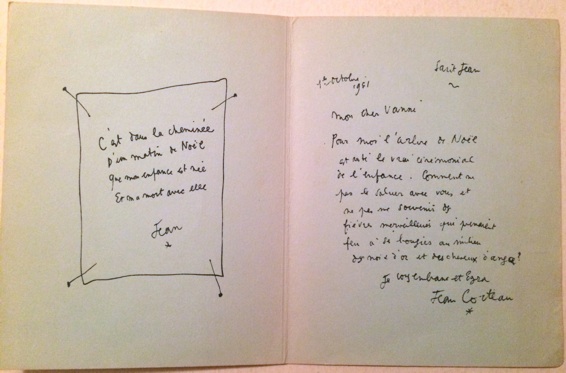 C'est dans la cheminée
D'un matin de Noël
Que mon enfance est née
Et ma mort avec elle
Jean
Saint Jean
1er octobre
1951
mon cher Vanni
Pour moi l'arbre de Noël
est resté le vrai cérémonial
de l'enfance. Comment ne
pas le saluer avec vous et
ne pas me souvenir des
fièvres merveilleuses qui prenaient
feu à ses bougies au milieu
des noix d'or et des cheveux d'anges!
Je embrasse et Ezra
Jean Cocteau